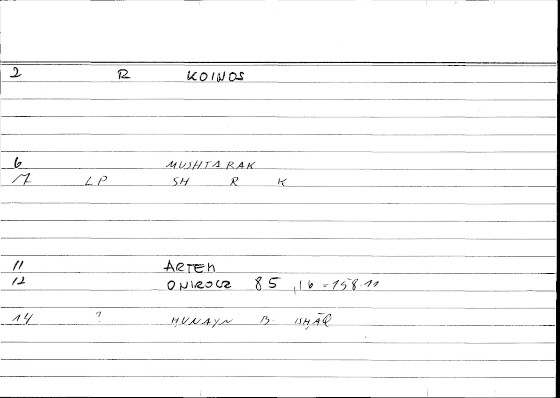 2 R KOINOS
6 MUSHTARAK
7 LP SH R K
11 ARTEM
12 ONIROCR 85, 16 = 158.11
14 ? HUNAYN B. ISHĀQ